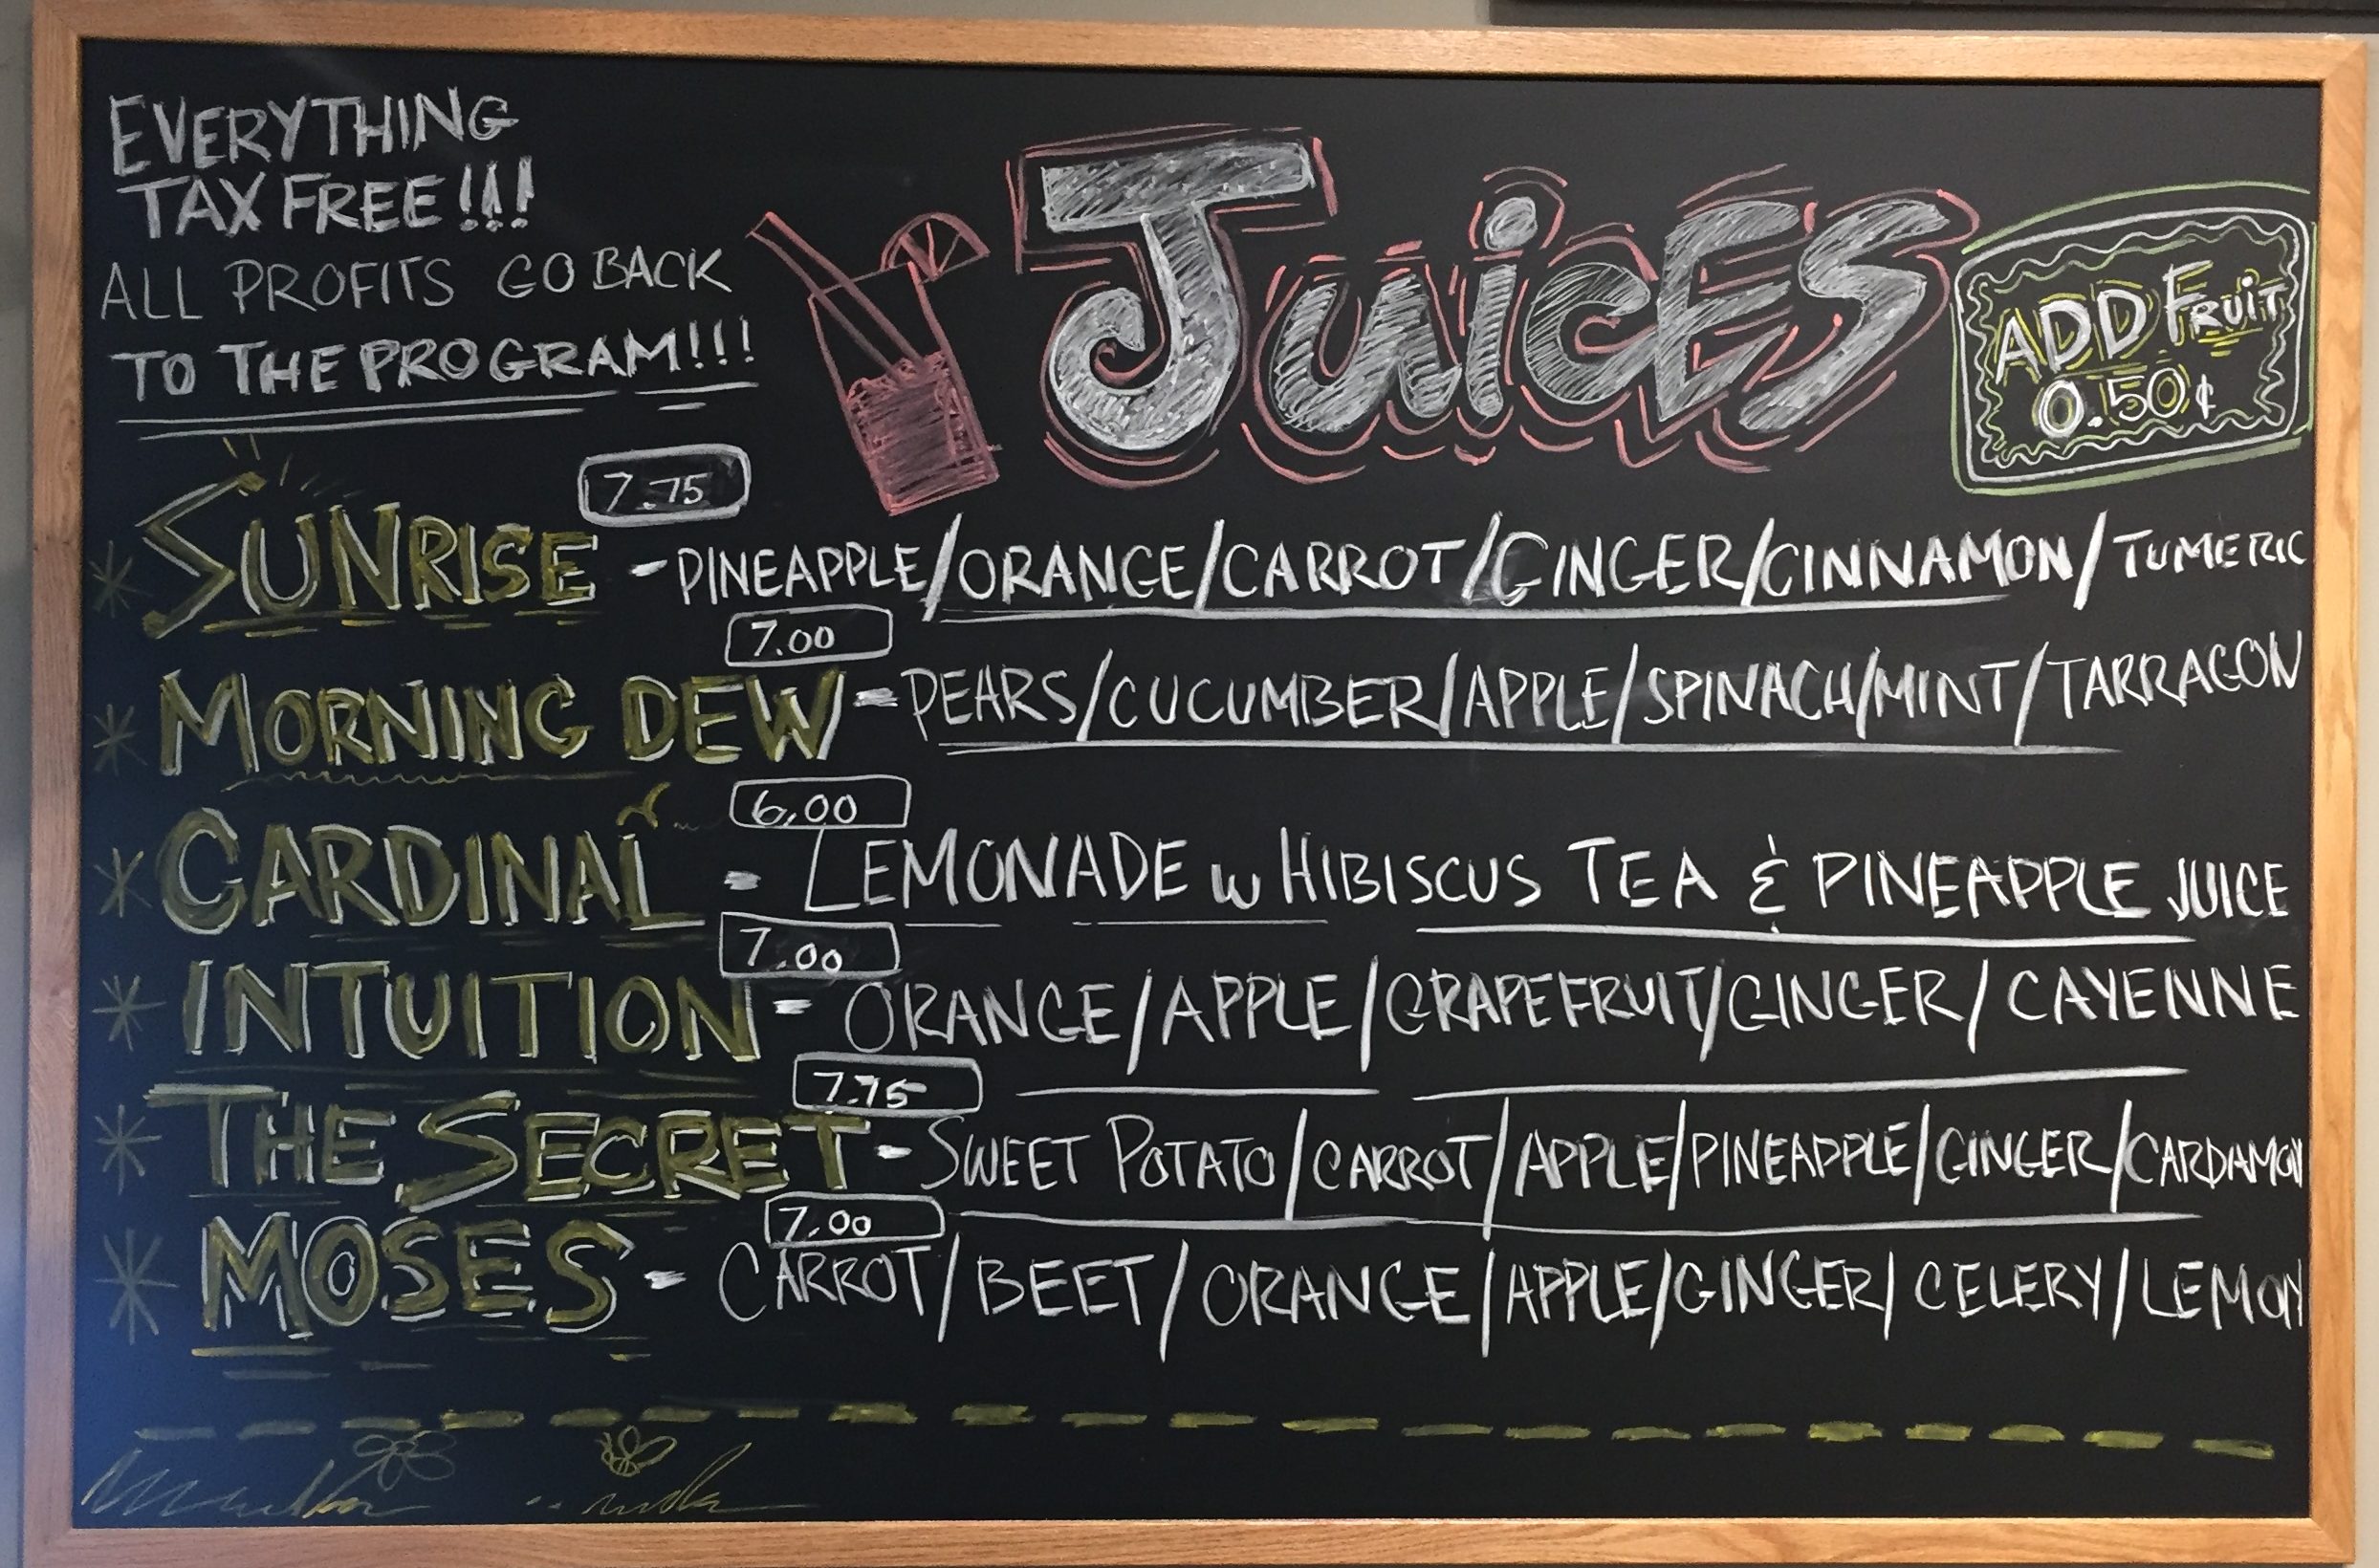 EVERYTHING
TAX FREE!!!
ALL PROFITS GO BACK
TO THE PROGRAM!!!
JuicES
ADD FRuiT
0.50¢
7.75
* SUNRISE - PINEAPPLE/ORANGE/CARROT/GINGER/CINNAMON/TUMERIC
7.00
* MORNING DEW - PEARS/CUCUMBER/APPLE/SPINACH/MINT/TARRAGON
6.00
* CARDINAL - LEMONADE w HIBISCUS TEA & PINEAPPLE JUICE
7.00
* INTUITION - ORANGE/APPLE/GRAPEFRUIT/GINGER/CAYENNE
7.75
* THE SECRET - SWEET POTATO/CARROT/APPLE/PINEAPPLE/GINGER/CARDAMON
7.00
* MOSES - CARROT/BEET/ORANGE/APPLE/GINGER/CELERY/LEMON